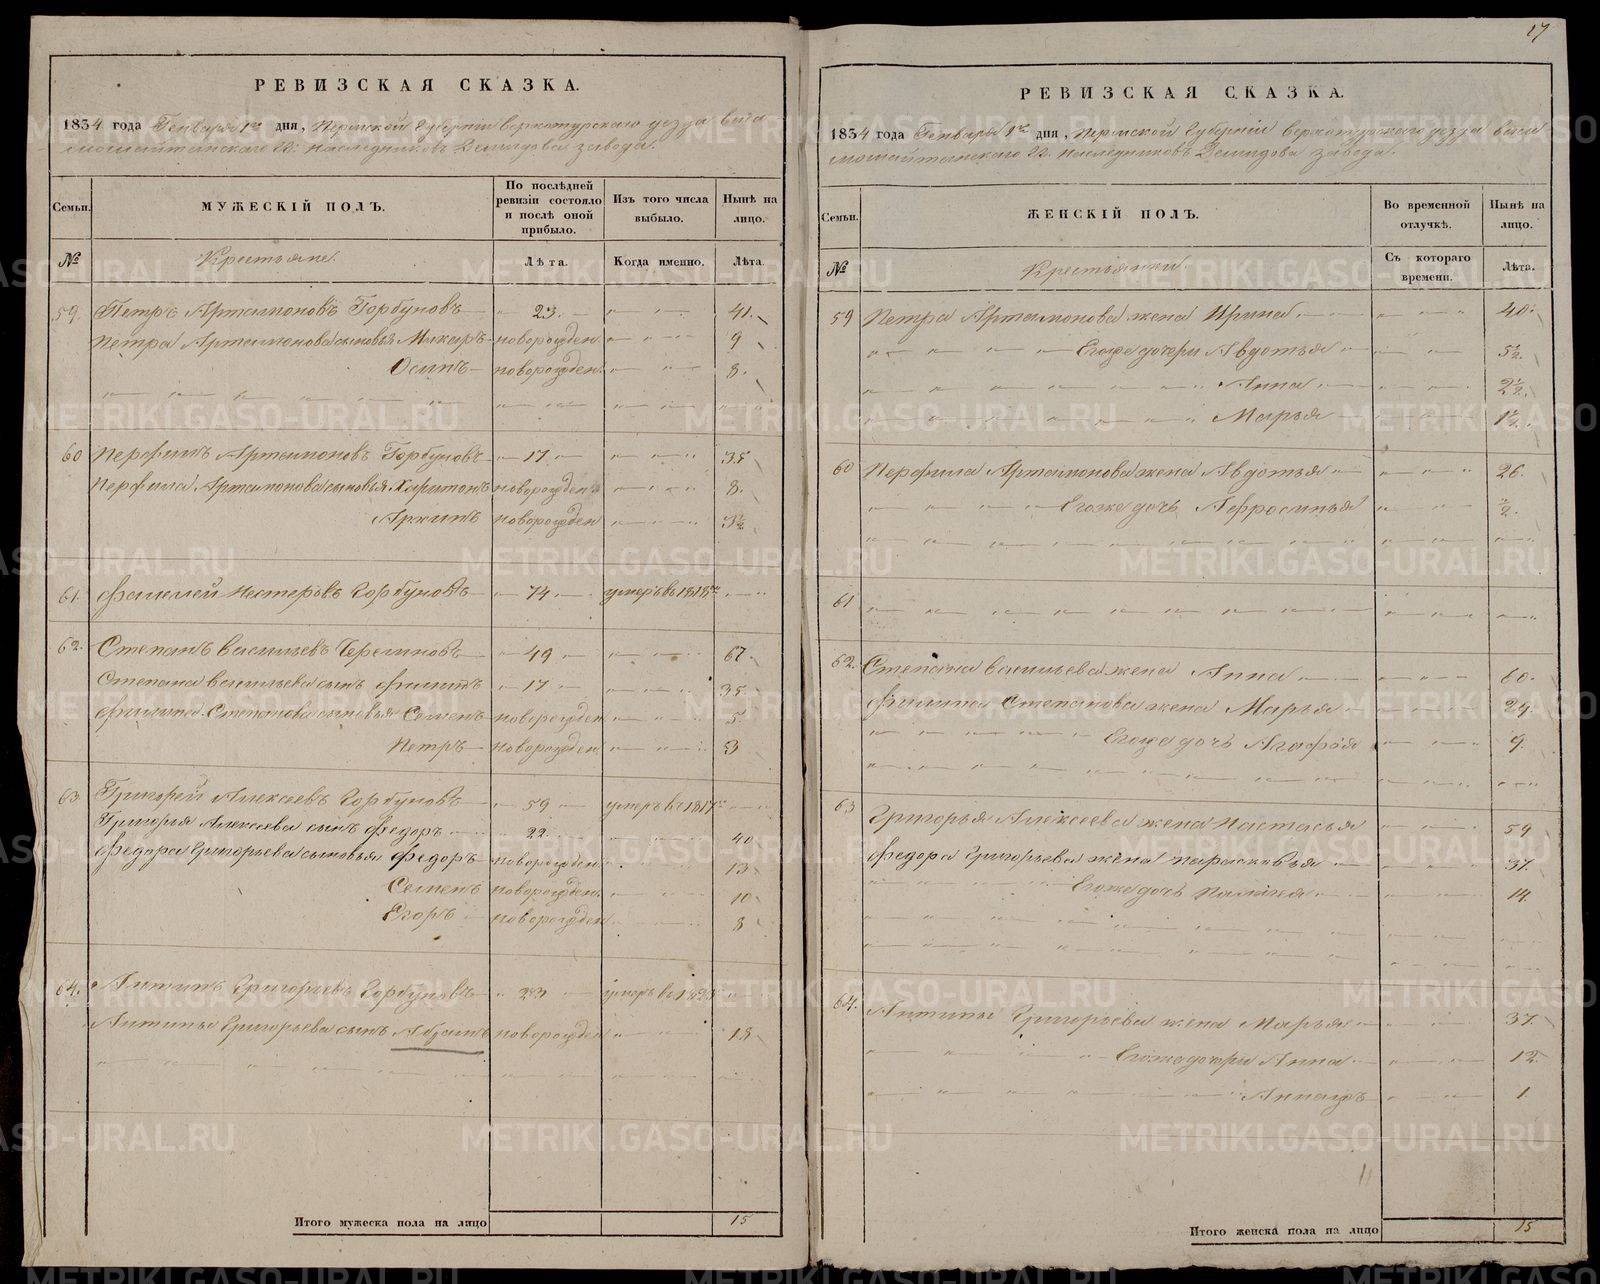 РЕВИЗСКАЯ СКАЗКА.
1834 года Генваря 1го дня, Пермской Губернiи верхотурскаго уезда виси
мошайтанскаго Гг: наследниковъ Демидова завода.
Семьи.
МУЖЕСКІЙ ПОЛЪ.
По послѣдней ревизіи состояло и послѣ оной прибыло.
Изъ того числа выбыло.
Нынѣ на лицо.
№
Крестьяне.
Лѣта.
Когда именно.
Лѣта.
59. Петръ Артамоновъ Горбуновъ 23. 41.
Петра Артамонова сыновья Макаръ новорожден. 9
Осипъ новорожден. 8.
60 Перфилъ Артамоновъ Горбуновъ 17 35
Перфила Артамонова сыновья Харитонъ новорожден. 8.
новорожден 3½
61. Нестеровъ Горбуновъ 74 умеръ въ 1818мъ
62. Степанъ васильевъ 49 67.
Степана васильева сынъ филипъ 17 35.
филипа Степанова сыновья Семенъ новорожден 5
Петръ новорожден. 3
63 Григорей Алексеевъ Горбуновъ 59 умеръ въ 1817мъ
Григорья Алексеева сынъ федоръ 22. 40
федора Григорьева сыновья федоръ новорожден. 13
Семенъ новорожден. 10.
Егоръ новорожден 8
64. Антипъ Григорьевъ Горбуновъ 23 умеръ въ
Антипы Григорьева сынъ новорожден 18
Итого мужеска пола на лицо 15
17
РЕВИЗСКАЯ СКАЗКА.
1834 года Генваря 1го дня, Пермской Губернiи верхотурскаго уезда виси
мошайтанскаго Гг. наследниковъ Демидова завода.
Семьи.
ЖЕНСКІЙ ПОЛЪ.
Во временной отлучкѣ.
Нынѣ на лицо.
№
Крестьянки.
Съ котораго времени.
Лѣта.
59 Петра Артамонова жена Ирина 40.
Егоже дочери Авдотья 5½.
Анна 2½.
Марья 1½.
60 Перфила Артамонова жена Авдотья 26.
Егоже дочь Афросинья ½.
61
62. Степана васильева жена Анна 60.
филипа Степанова жена Марья 29.
Егоже дочь Агафья 9.
63 Григорья Алексеева жена Настасья 59
федора Григорьева жена парасковья 37.
Егоже дочь 14.
64. Антипы Григорьева жена Марья 37.
Егоже дочери Анна 12.
1.
Итого женска пола на лицо 15
METRIKI.GASO-URAL.RU